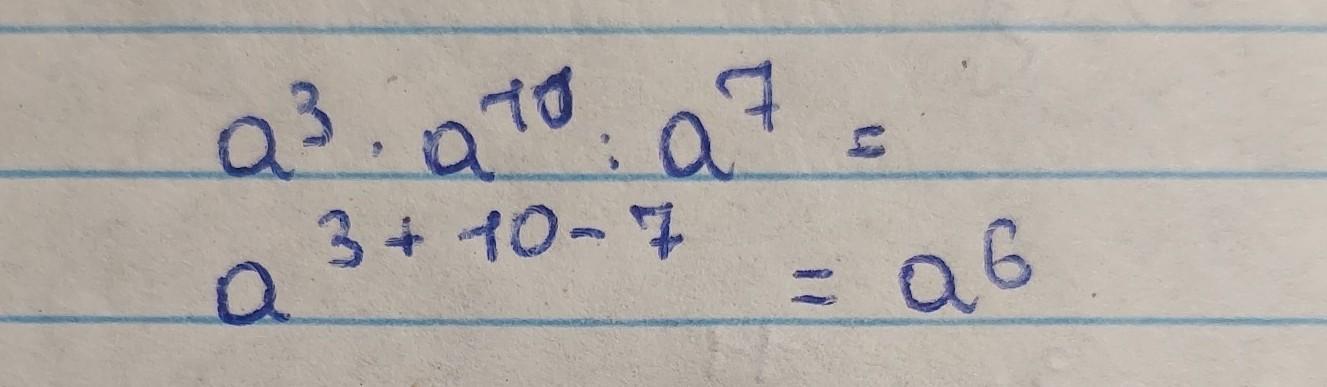 a³ · a¹⁰ : a⁷ =
a³⁺¹⁰⁻⁷ = a⁶